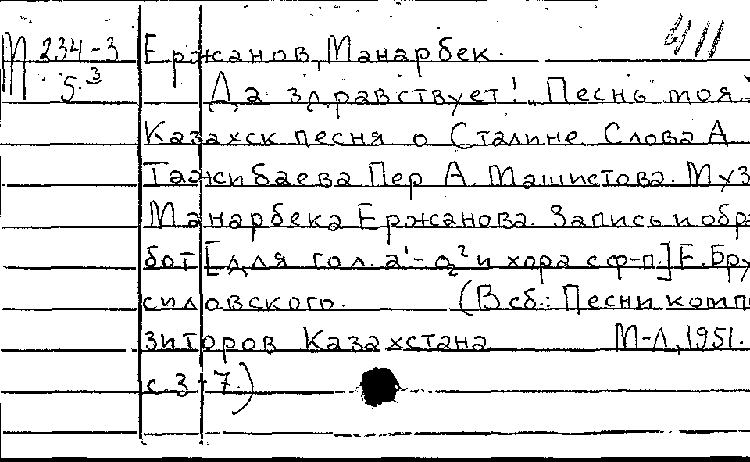 М 234-3 Ержанов, Манарбек. 411
5.³ Да здравствует! „Песнь моя
Казахск песня о Сталине. Слова А
Тажибаева Пер А. Машистова. Муз
Манарбека Ержанова. Запись и обра
бот [для гол. а¹-g² и хора с ф-п.] Е. Бру
силовского. (В сб.: Песни компо
зиторов Казахстана М-Л, 1951.
с 3-7.)